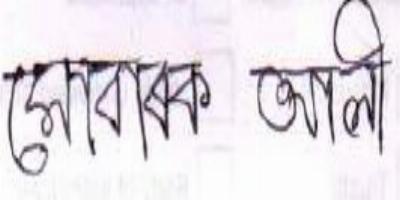 মোবারক আলী